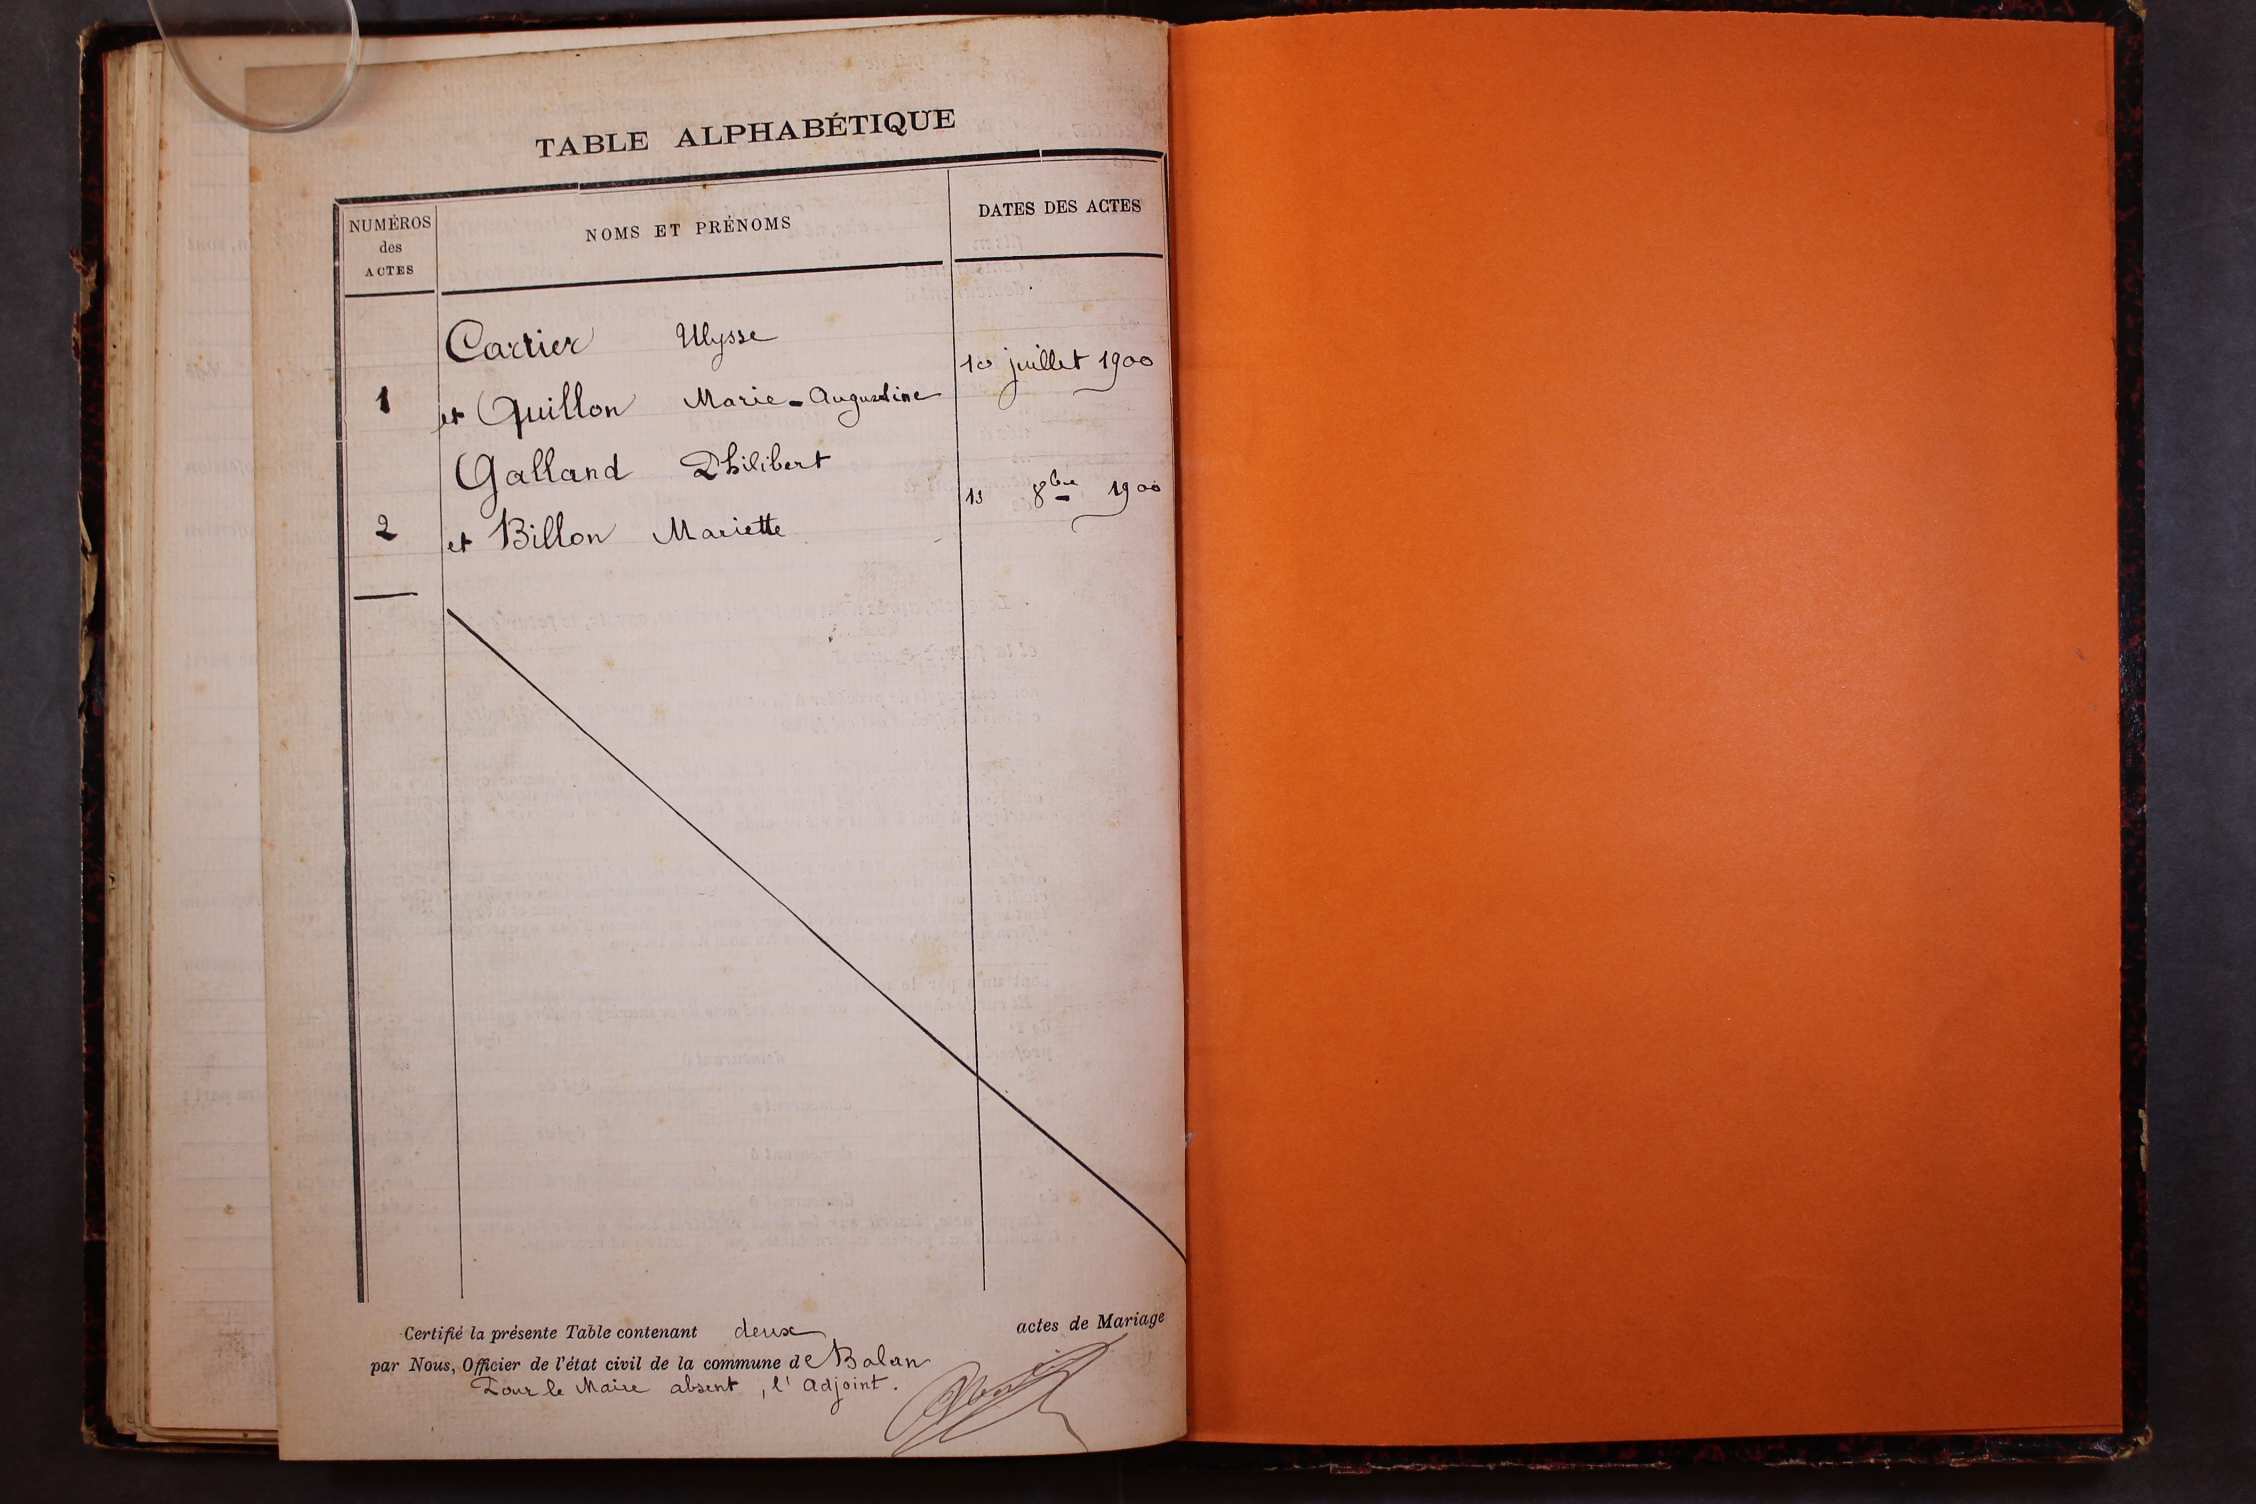 TABLE ALPHABÉTIQUE
NUMÉROS
des
ACTES
NOMS ET PRÉNOMS
DATES DES ACTES
Carrier Ulysse
10 juillet 1900
1 et Quillon Marie-Augustine
Galland Philibert
13 8bre 1900
2 et Billon Mariette
Certifié la présente Table contenant deux actes de Mariage
par Nous, Officier de l'état civil de la commune de Balan
Pour le Maire absent, l'adjoint.